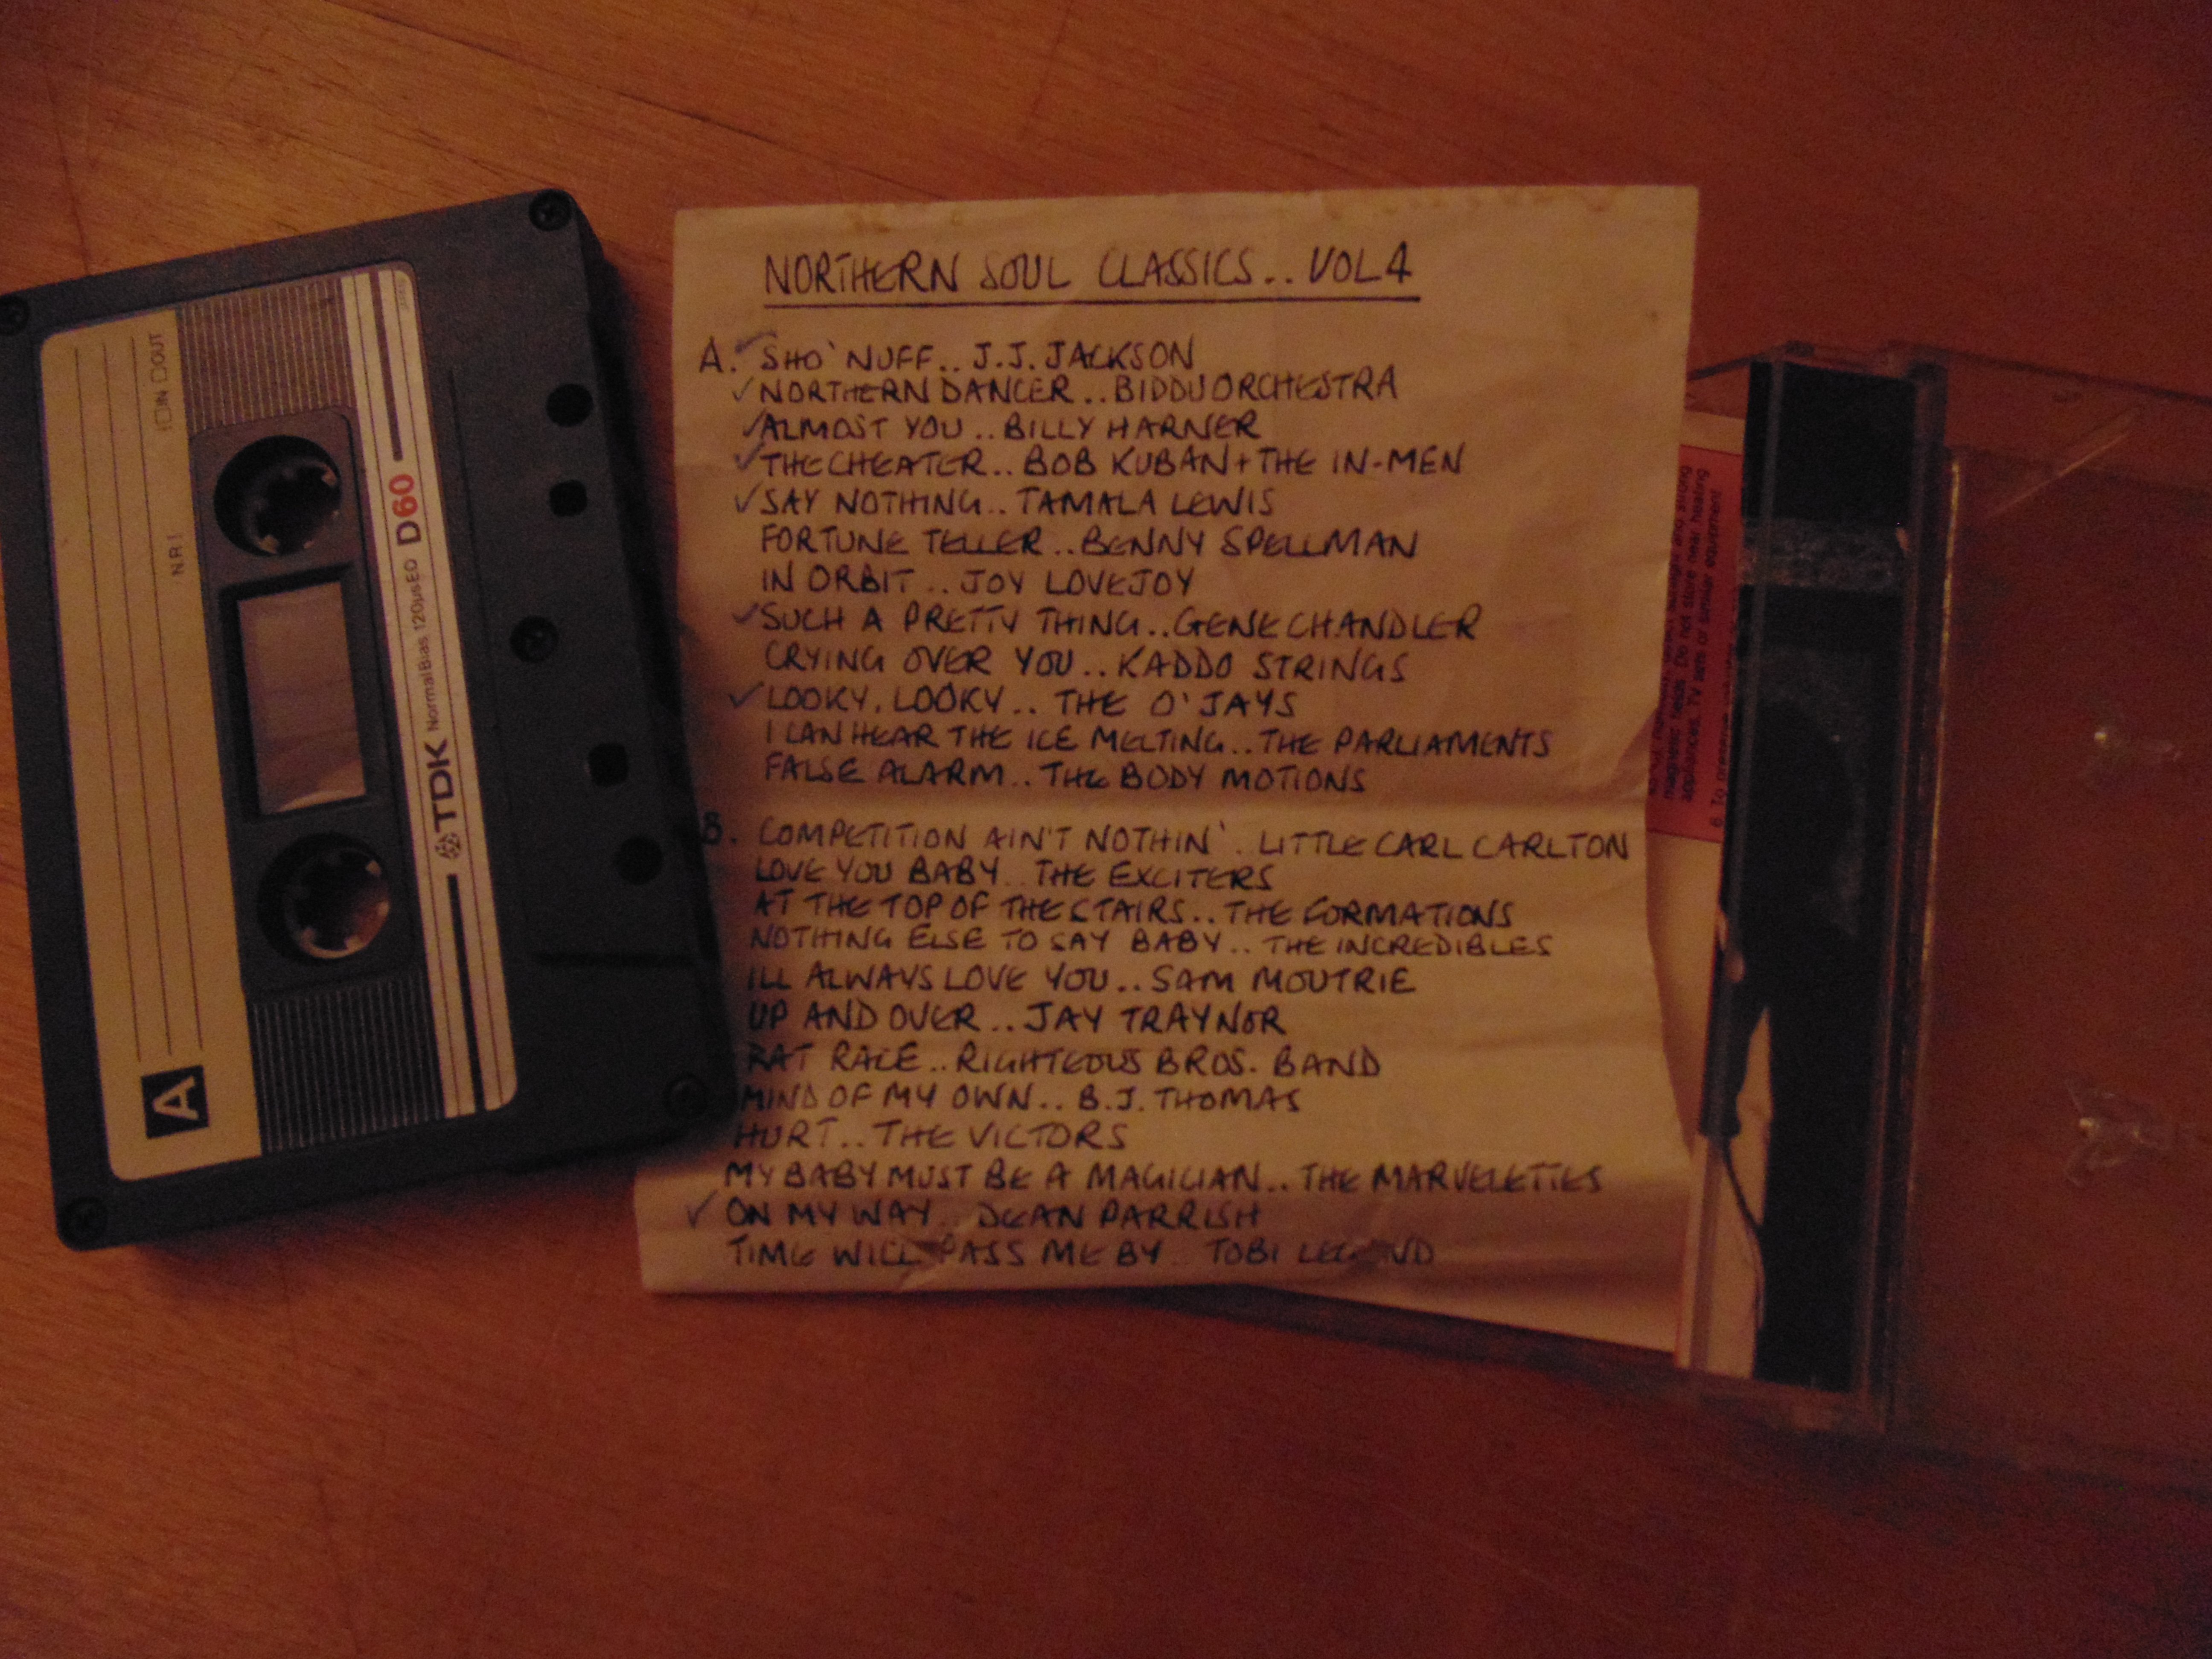 □IN □OUT
N.R!
A
TDK Normal Bias 120µs EQ D60
NORTHERN SOUL CLASSICS.. VOL 4
A. ✓ SHO' NUFF.. J.J. JACKSON
✓ NORTHERN DANCER.. BIDDU ORCHESTRA
✓ ALMOST YOU.. BILLY HARNER
✓ THE CHEATER.. BOB KUBAN + THE IN-MEN
✓ SAY NOTHING.. TAMALA LEWIS
FORTUNE TELLER.. BENNY SPELLMAN
IN ORBIT.. JOY LOVEJOY
✓ SUCH A PRETTY THING.. GENE CHANDLER
CRYING OVER YOU.. KADDO STRINGS
✓ LOOKY, LOOKY.. THE O'JAYS
I CAN HEAR THE ICE MELTING.. THE PARLIAMENTS
FALSE ALARM.. THE BODY MOTIONS
B. COMPETITION AIN'T NOTHIN'. LITTLE CARL CARLTON
LOVE YOU BABY.. THE EXCITERS
AT THE TOP OF THE STAIRS.. THE FORMATIONS
NOTHING ELSE TO SAY BABY.. THE INCREDIBLES
ILL ALWAYS LOVE YOU.. SAM MOUTRIE
UP AND OVER.. JAY TRAYNOR
RAT RACE.. RIGHTEOUS BROS. BAND
MIND OF MY OWN.. B.J. THOMAS
HURT.. THE VICTORS
MY BABY MUST BE A MAGICIAN.. THE MARVELETTES
✓ ON MY WAY.. DEAN PARRISH
TIME WILL PASS ME BY.. TOBI LEGEND
strong
magnetic heads. Do not store near heating
appliances, TV sets or similar equipment
6 To preserve